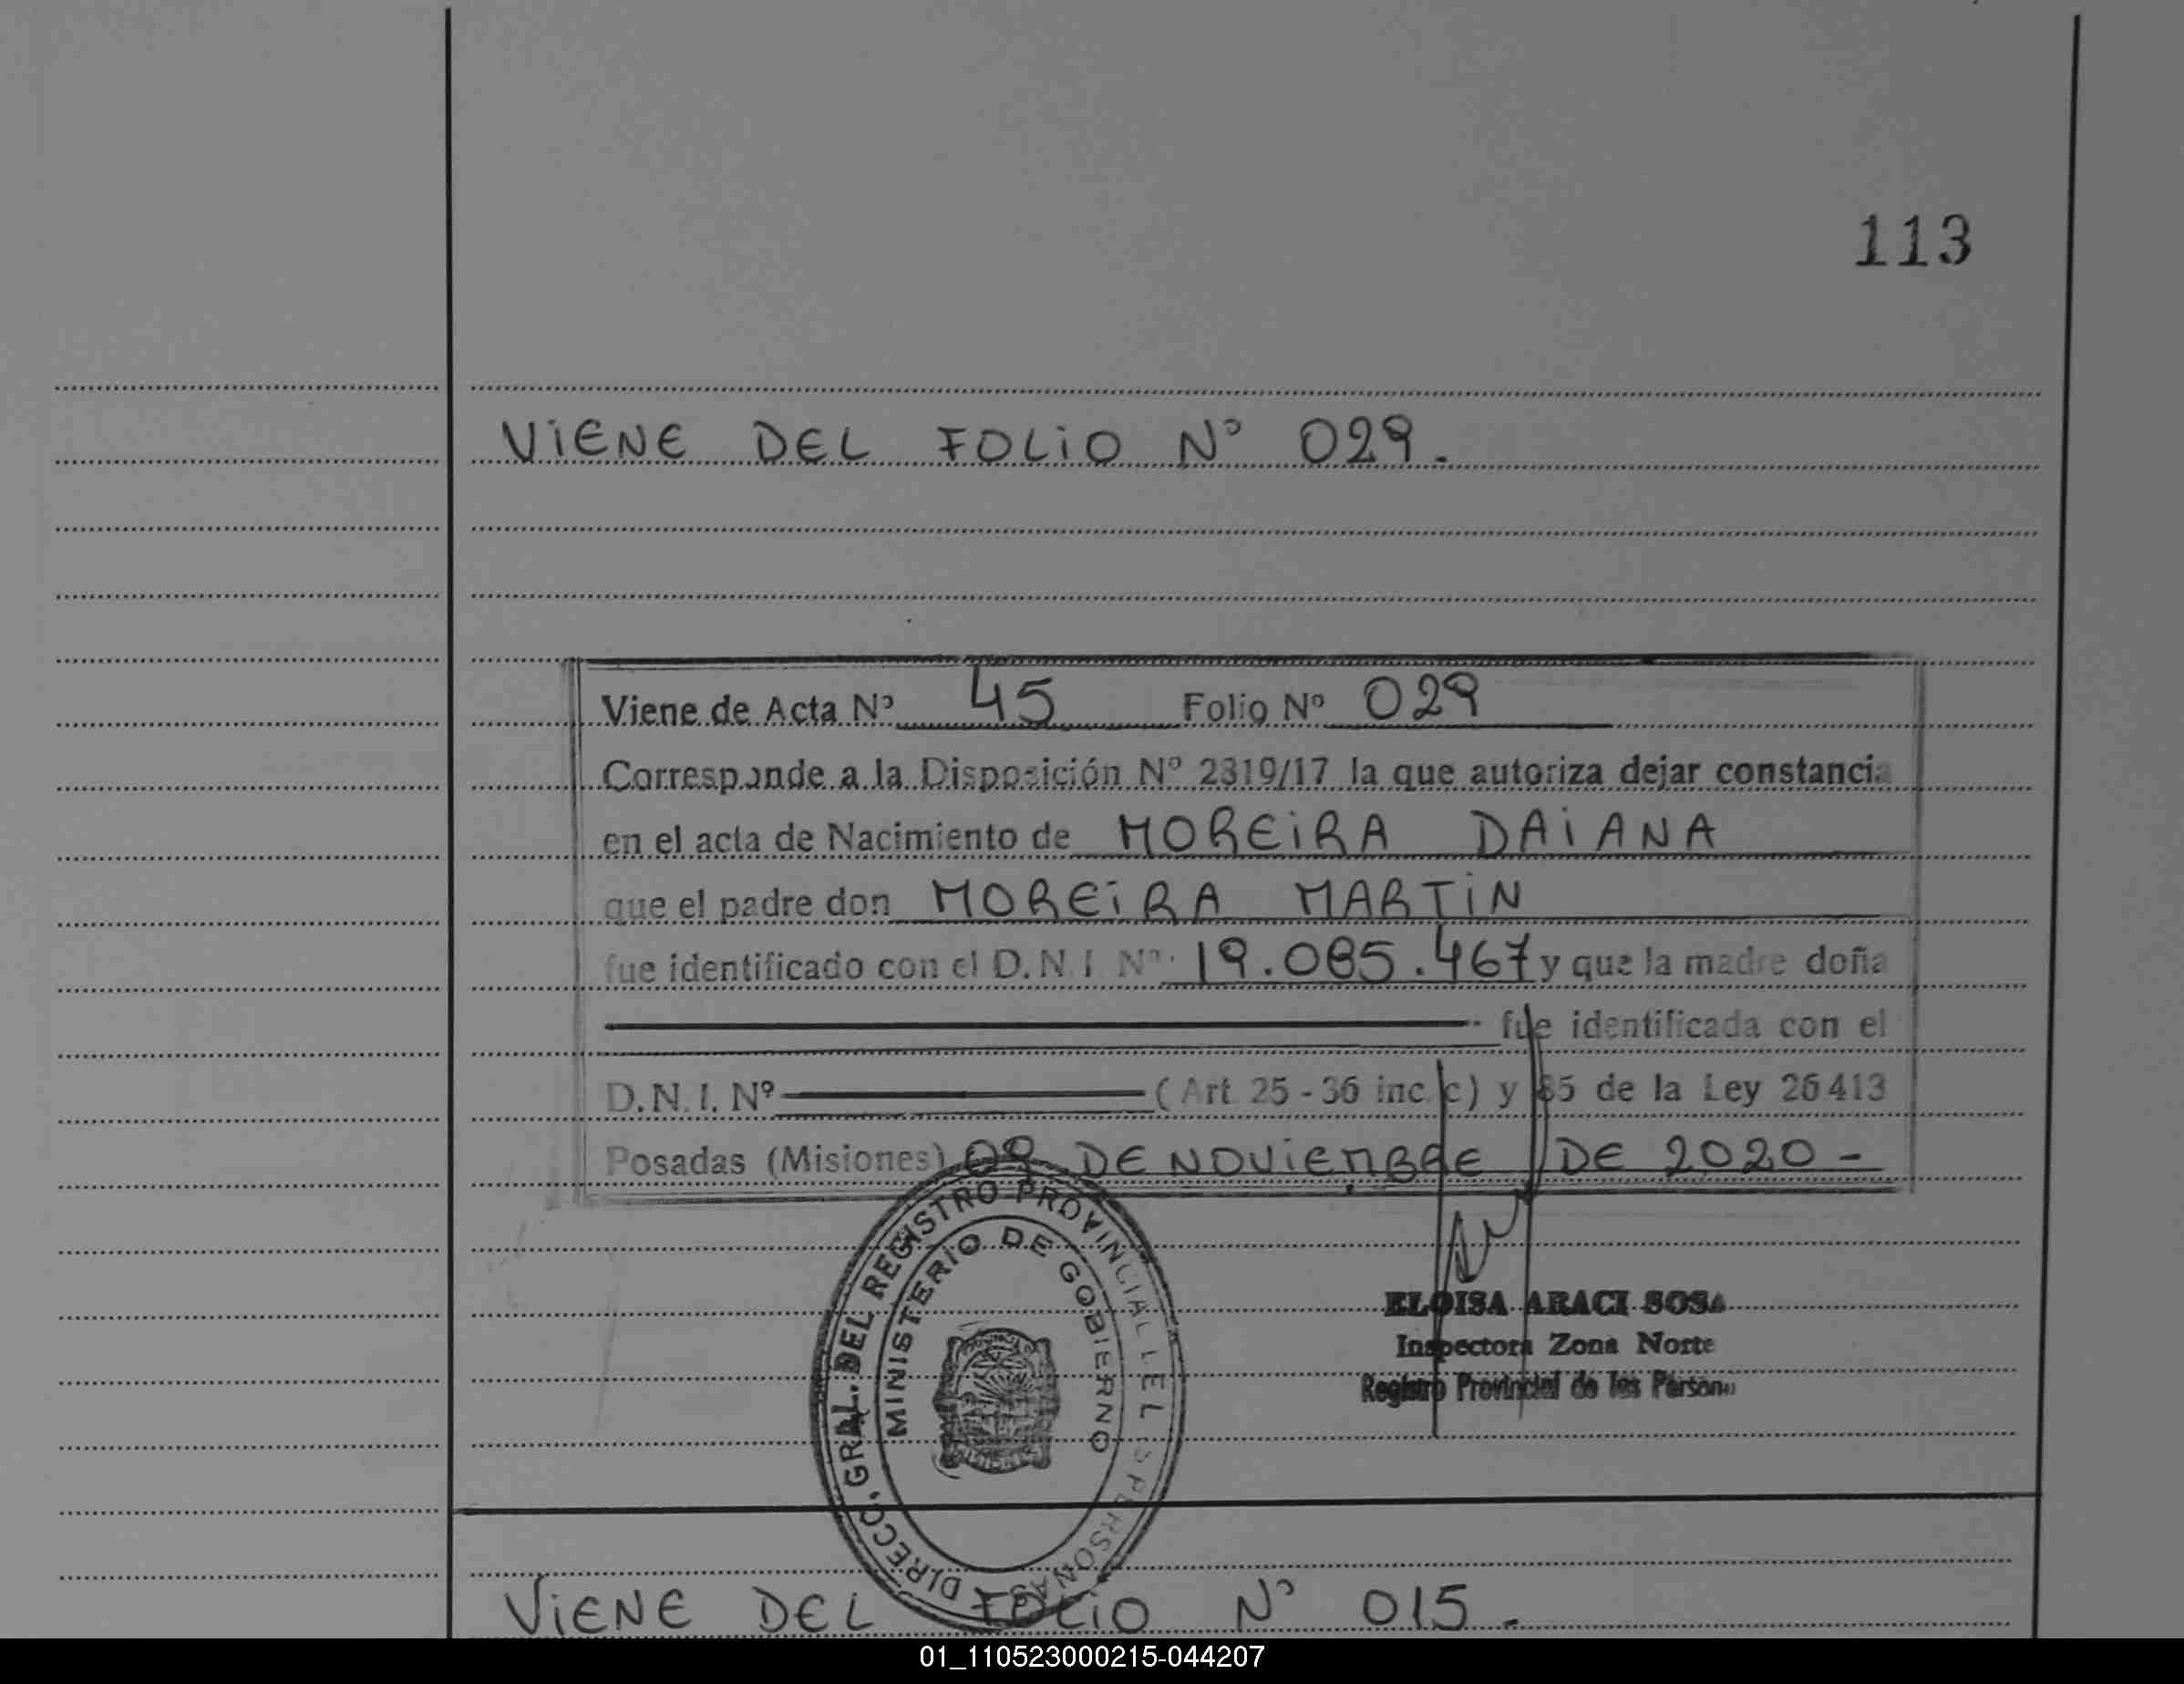 113
VIENE DEL FOLIO N° 029.
Viene de Acta Nº 45 Folio Nº 029
Corresponde a la Disposición Nº 2319/17 la que autoriza dejar constancia
en el acta de Nacimiento de MOREIRA DAIANA
que el padre don MOREIRA MARTIN
fue identificado con el D.N.I. Nº 19.085.467 y que la madre doña
fue identificada con el
D.N.I. Nº (Art 25-36 inc. c) y 85 de la Ley 26413
Posadas (Misiones) 09 DE NOVIEMBRE DE 2020-
DIRECC. GRAL. DEL REGISTRO PROVINCIAL DE LAS PERSONAS
MINISTERIO DE GOBIERNO
MISIONES
ELOISA ARACI SOSA
Inspectora Zona Norte
Registro Provincial de las Persona
VIENE DEL FOLIO N° 015.
01_110523000215-044207